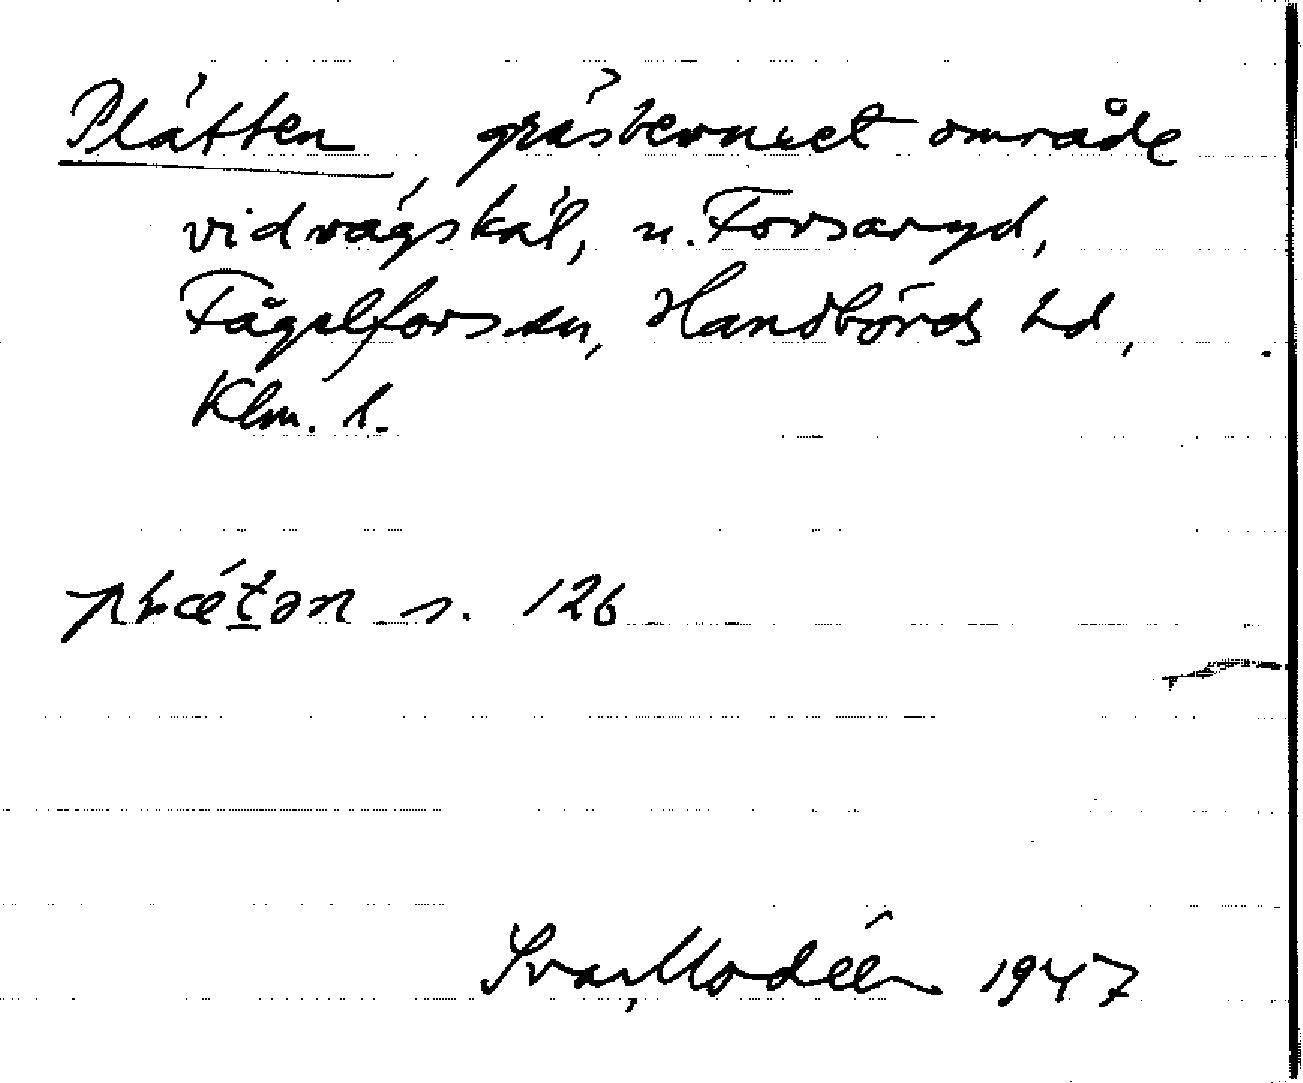 Plätten, gräsbevuxet område
vid vägskäl, n. Forsaryd,
Fågelforssn, Handbörds hd,
Klm. l.
plætən s. 126
Ivar Modéer 1947